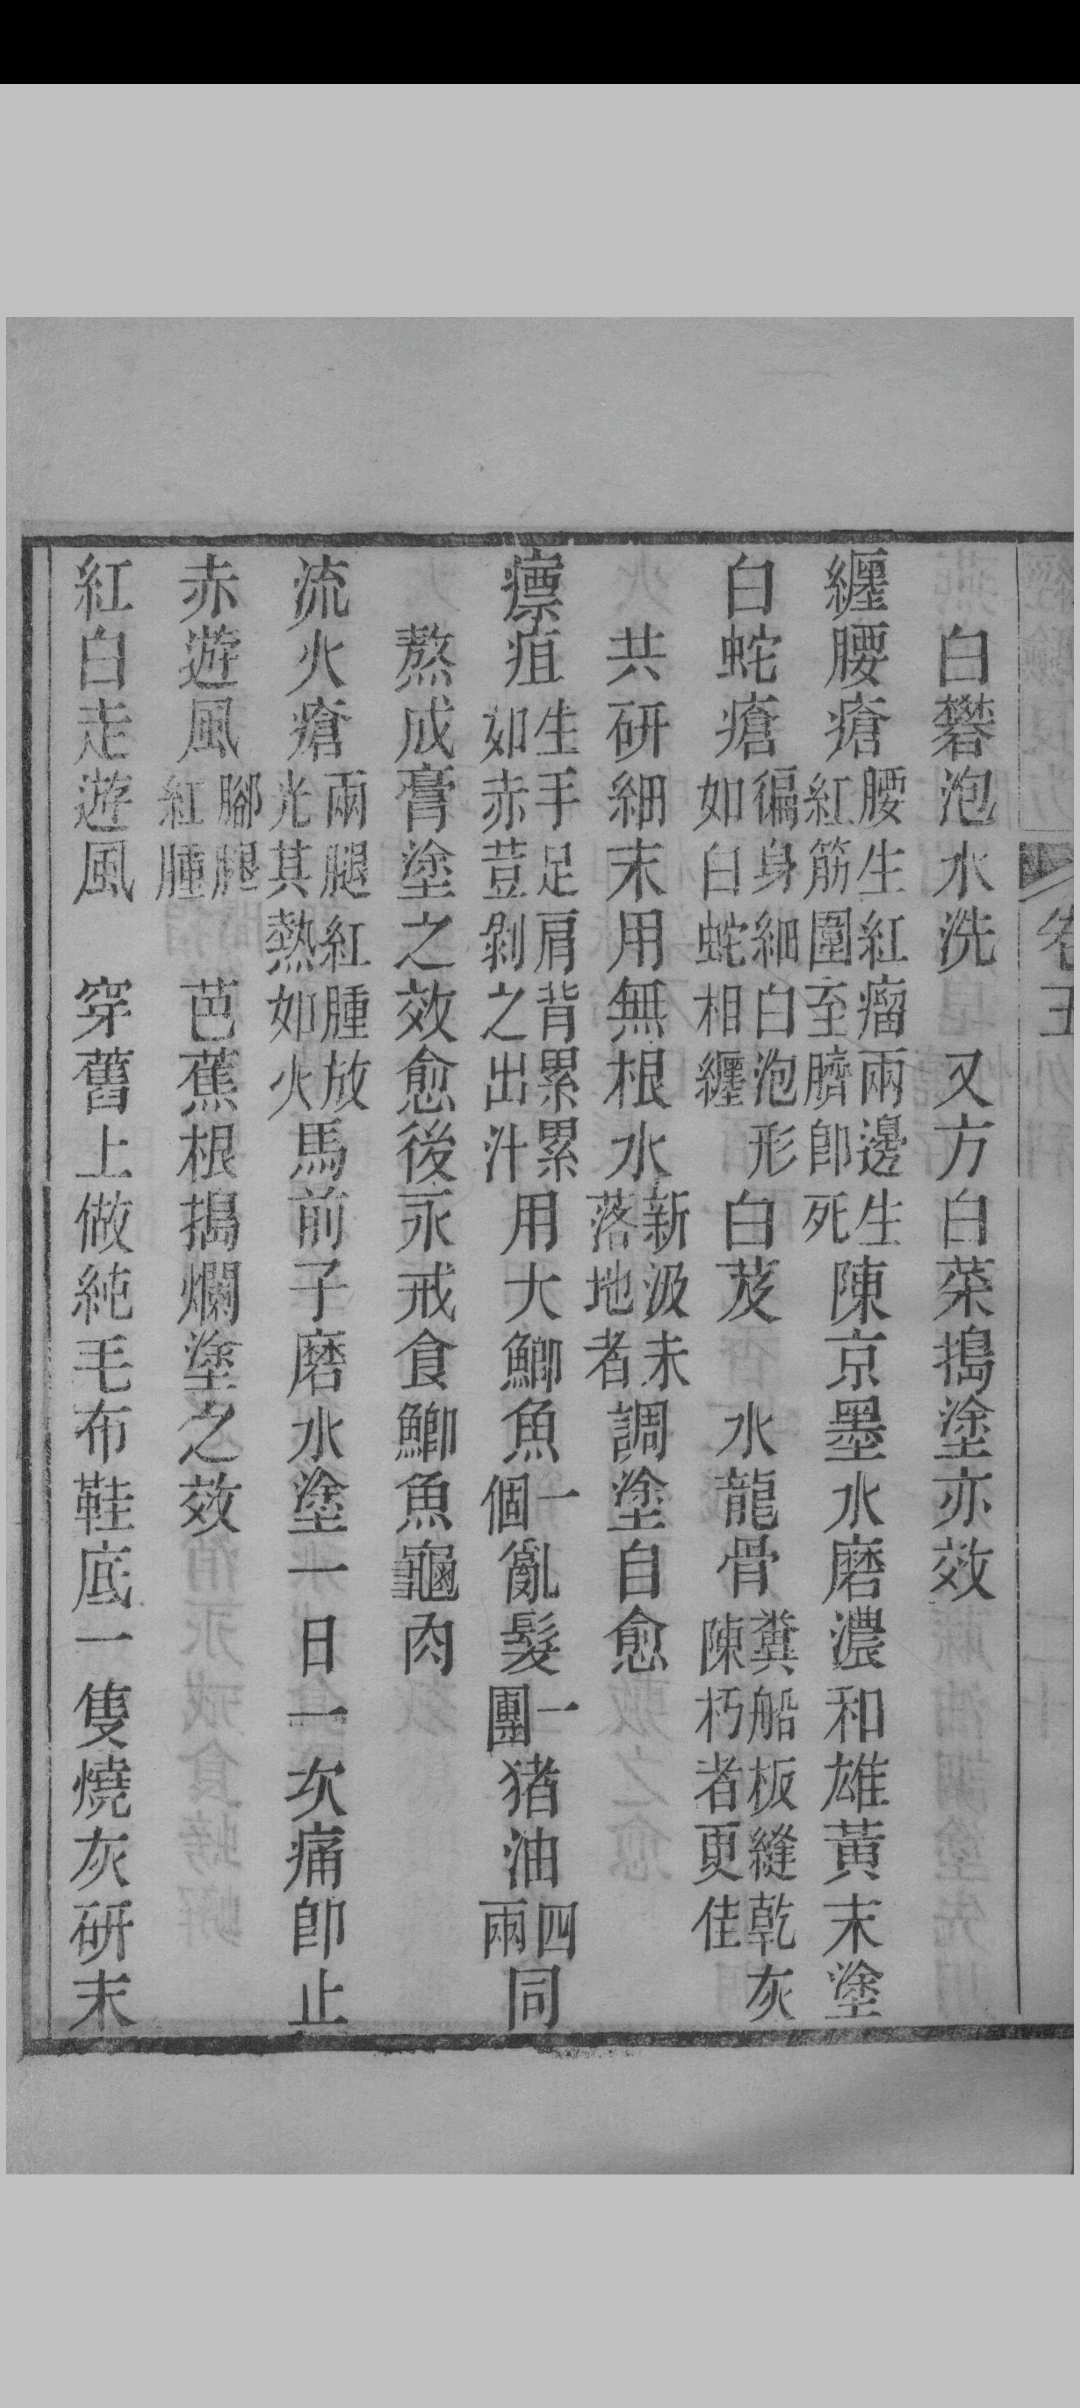 卷五
白礬泡水洗　又方白菜搗塗亦效
纒腰瘡腰生紅瘤兩邊生紅筋圍至臍卽死陳京墨水磨濃和雄黃末塗
白蛇瘡徧身細白泡形如白蛇相纒白芨　水龍骨糞船板縫乾灰陳朽者更佳
共研細末用無根水新汲未落地者調塗自愈
瘭疽生手足肩背累累如赤荳剝之出汁用大鯽魚一個亂髮一團猪油四兩同
熬成膏塗之效愈後永戒食鯽魚龜肉
流火瘡兩腿紅腫放光其熱如火馬前子磨水塗一日一次痛卽止
赤遊風腳腿紅腫　芭蕉根搗爛塗之效
紅白走遊風　穿舊上做純毛布鞋底一隻燒灰研末